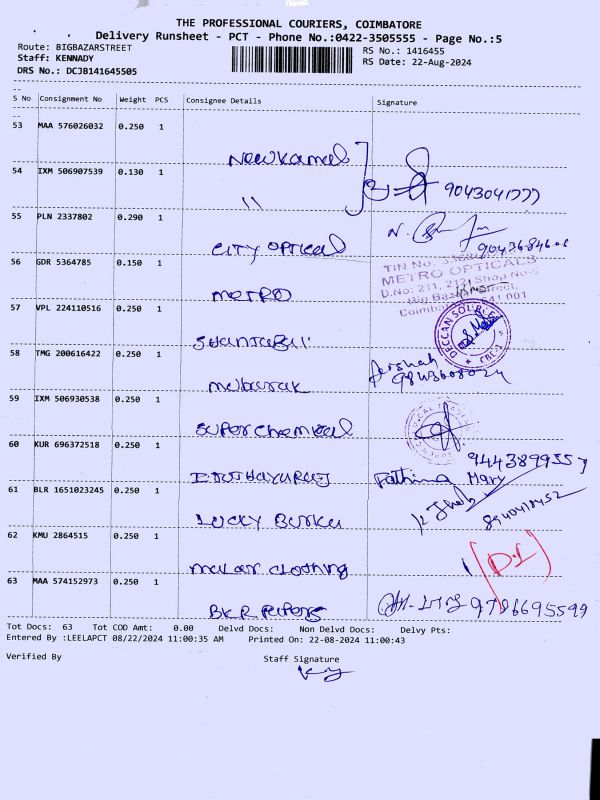 THE PROFESSIONAL COURIERS, COIMBATORE
Delivery Runsheet - PCT - Phone No.:0422-3505555 - Page No.:5
Route: BIGBAZARSTREET
Staff: KENNADY
DRS No.: DCJB141645505
RS No.: 1416455
RS Date: 22-Aug-2024
S No Consignment No Weight PCS Consignee Details Signature
53 MAA 576026032 0.250 1
New Kamal
54 IXM 506907539 0.130 1
11 9043041777
55 PLN 2337802 0.290 1
CITY OPTICAL N.
56 GDR 5364785 0.150 1
METRO
TIN No.
METRO OPTICALS
D.No: 211, 212, Shop No.
Big Bazar Street,
Coimbatore - 641 001
57 VPL 224110516 0.250 1
DECCAN
CBE-1
58 TMG 200616422 0.250 1
mubarak
59 IXM 506930538 0.250 1
SUPER chemical
60 KUR 696372518 0.250 1
Fathima Mary
61 BLR 1651023245 0.250 1
LUCKY Burka 8940418452
62 KMU 2864515 0.250 1
clothing
63 MAA 574152973 0.250 1
BKR PAPERS 9786695599
Tot Docs: 63 Tot COD Amt: 0.00 Delvd Docs: Non Delvd Docs: Delvy Pts:
Entered By :LEELAPCT 08/22/2024 11:00:35 AM Printed On: 22-08-2024 11:00:43
Verified By Staff Signature